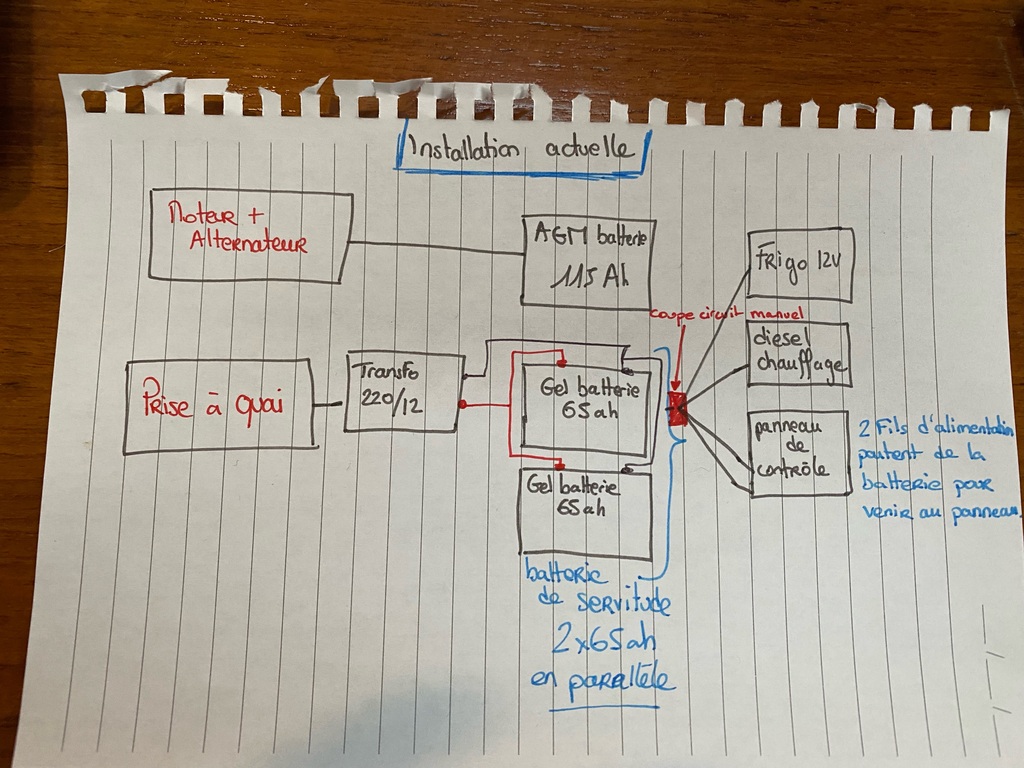 Installation actuelle
Moteur +
Alternateur
AGM batterie
115 Ah
Frigo 12V
coupe circuit manuel
diesel
chauffage
Prise à quai
Transfo
220/12
Gel batterie
65ah
panneau
de
contrôle
2 Fils d'alimentation
partent de la
batterie pour
venir au panneau
Gel batterie
65ah
batterie
de servitude
2x65ah
en parallèle